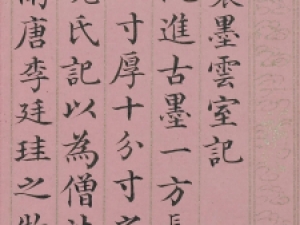 墨雲室記
進古墨一方長
寸厚十分寸之
氏記以為僧
南唐李廷珪之